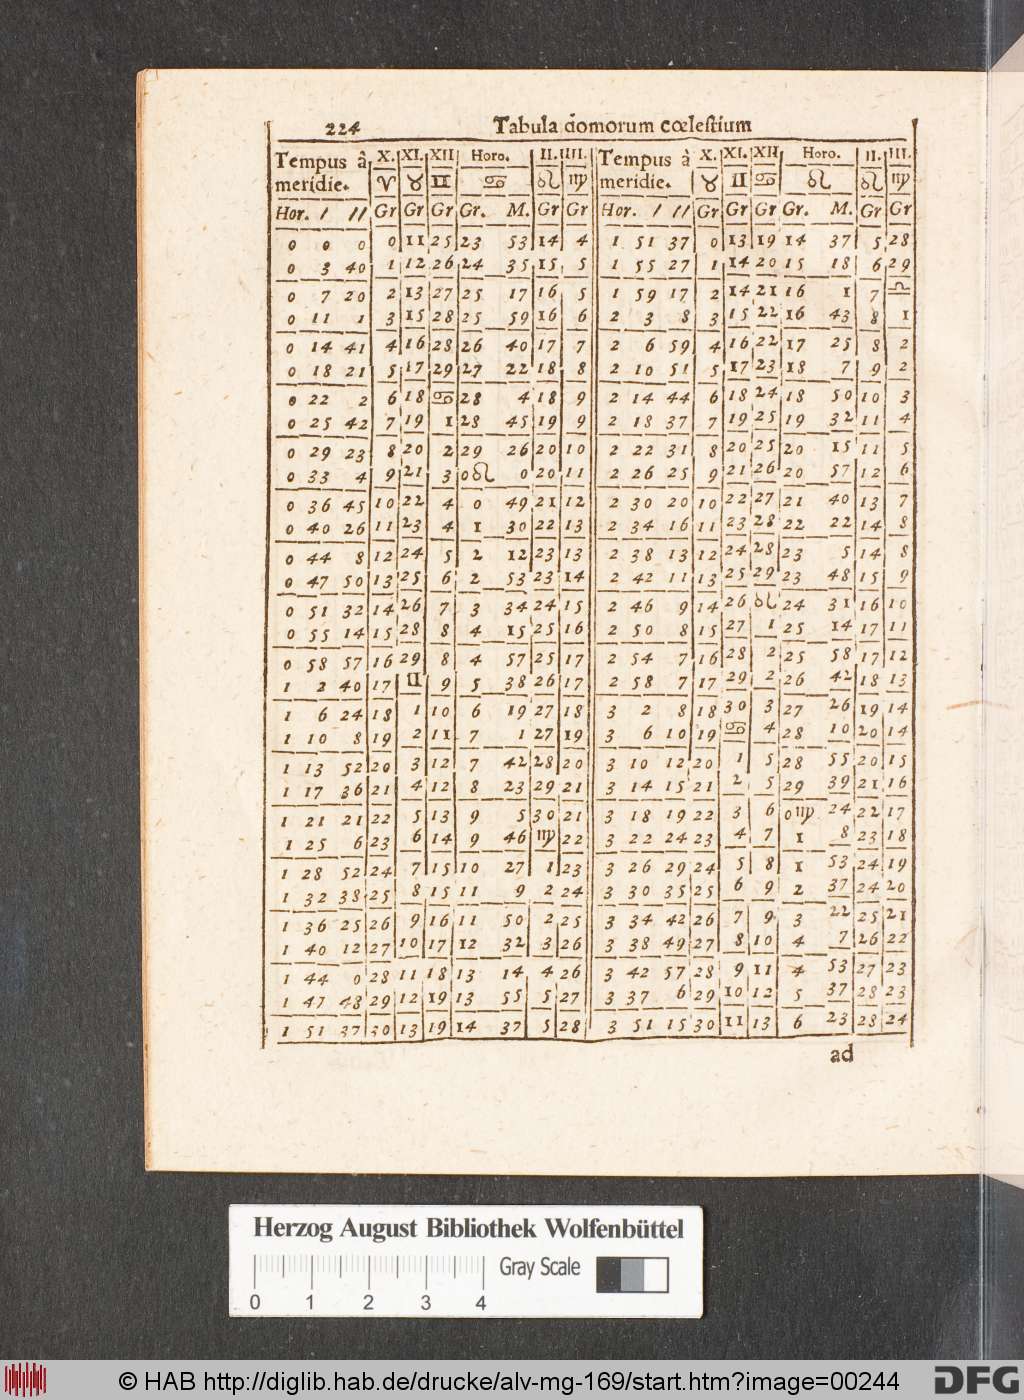 224 Tabula domorum cœlestium
Tempus â X. XI. XII Horo. II. III. Tempus à X. XI. XII Horo. II. III.
meridie. ♈ ♉ ♊ ♋ ♌ ♍ meridie. ♉ ♊ ♋ ♌ ♌ ♍
Hor. / // Gr Gr Gr Gr. M. Gr Gr Hor. / // Gr Gr Gr Gr. M. Gr Gr
0 0 0 0 11 25 23 53 14 4 1 51 37 0 13 19 14 37 5 28
0 3 40 1 12 26 24 35 15 5 1 55 27 1 14 20 15 18 6 29
0 7 20 2 13 27 25 17 16 5 1 59 17 2 14 21 16 1 7 ♎
0 11 1 3 15 28 25 59 16 6 2 3 8 3 15 22 16 43 8 1
0 14 41 4 16 28 26 40 17 7 2 6 59 4 16 22 17 25 8 2
0 18 21 5 17 29 27 22 18 8 2 10 51 5 17 23 18 7 9 2
0 22 2 6 18 ♋ 28 4 18 9 2 14 44 6 18 24 18 50 10 3
0 25 42 7 19 1 28 45 19 9 2 18 37 7 19 25 19 32 11 4
0 29 23 8 20 2 29 26 20 10 2 22 31 8 20 25 20 15 11 5
0 33 4 9 21 3 0♌ 0 20 11 2 26 25 9 21 26 20 57 12 6
0 36 45 10 22 4 0 49 21 12 2 30 20 10 22 27 21 40 13 7
0 40 26 11 23 4 1 30 22 13 2 34 16 11 23 28 22 22 14 8
0 44 8 12 24 5 2 12 23 13 2 38 13 12 24 28 23 5 14 8
0 47 50 13 25 6 2 53 23 14 2 42 11 13 25 29 23 48 15 9
0 51 32 14 26 7 3 34 24 15 2 46 9 14 26 ♌ 24 31 16 10
0 55 14 15 28 8 4 15 25 16 2 50 8 15 27 1 25 14 17 11
0 58 57 16 29 8 4 57 25 17 2 54 7 16 28 2 25 58 17 12
1 2 40 17 ♊ 9 5 38 26 17 2 58 7 17 29 2 26 42 18 13
1 6 24 18 1 10 6 19 27 18 3 2 8 18 30 3 27 26 19 14
1 10 8 19 2 11 7 1 27 19 3 6 10 19 ♋ 4 28 10 20 14
1 13 52 20 3 12 7 42 28 20 3 10 12 20 1 5 28 55 20 15
1 17 36 21 4 12 8 23 29 21 3 14 15 21 2 5 29 39 21 16
1 21 21 22 5 13 9 5 30 21 3 18 19 22 3 6 0♍ 24 22 17
1 25 6 23 6 14 9 46 ♍ 22 3 22 24 23 4 7 1 8 23 18
1 28 52 24 7 15 10 27 1 23 3 26 29 24 5 8 1 53 24 19
1 32 38 25 8 15 11 9 2 24 3 30 35 25 6 9 2 37 24 20
1 36 25 26 9 16 11 50 2 25 3 34 42 26 7 9 3 22 25 21
1 40 12 27 10 17 12 32 3 26 3 38 49 27 8 10 4 7 26 22
1 44 0 28 11 18 13 14 4 26 3 42 57 28 9 11 4 53 27 23
1 47 48 29 12 19 13 55 5 27 3 37 6 29 10 12 5 37 28 23
1 51 37 30 13 19 14 37 5 28 3 51 15 30 11 13 6 23 28 24
ad
Herzog August Bibliothek Wolfenbüttel
Gray Scale
0 1 2 3 4
© HAB http://diglib.hab.de/drucke/alv-mg-169/start.htm?image=00244
DFG